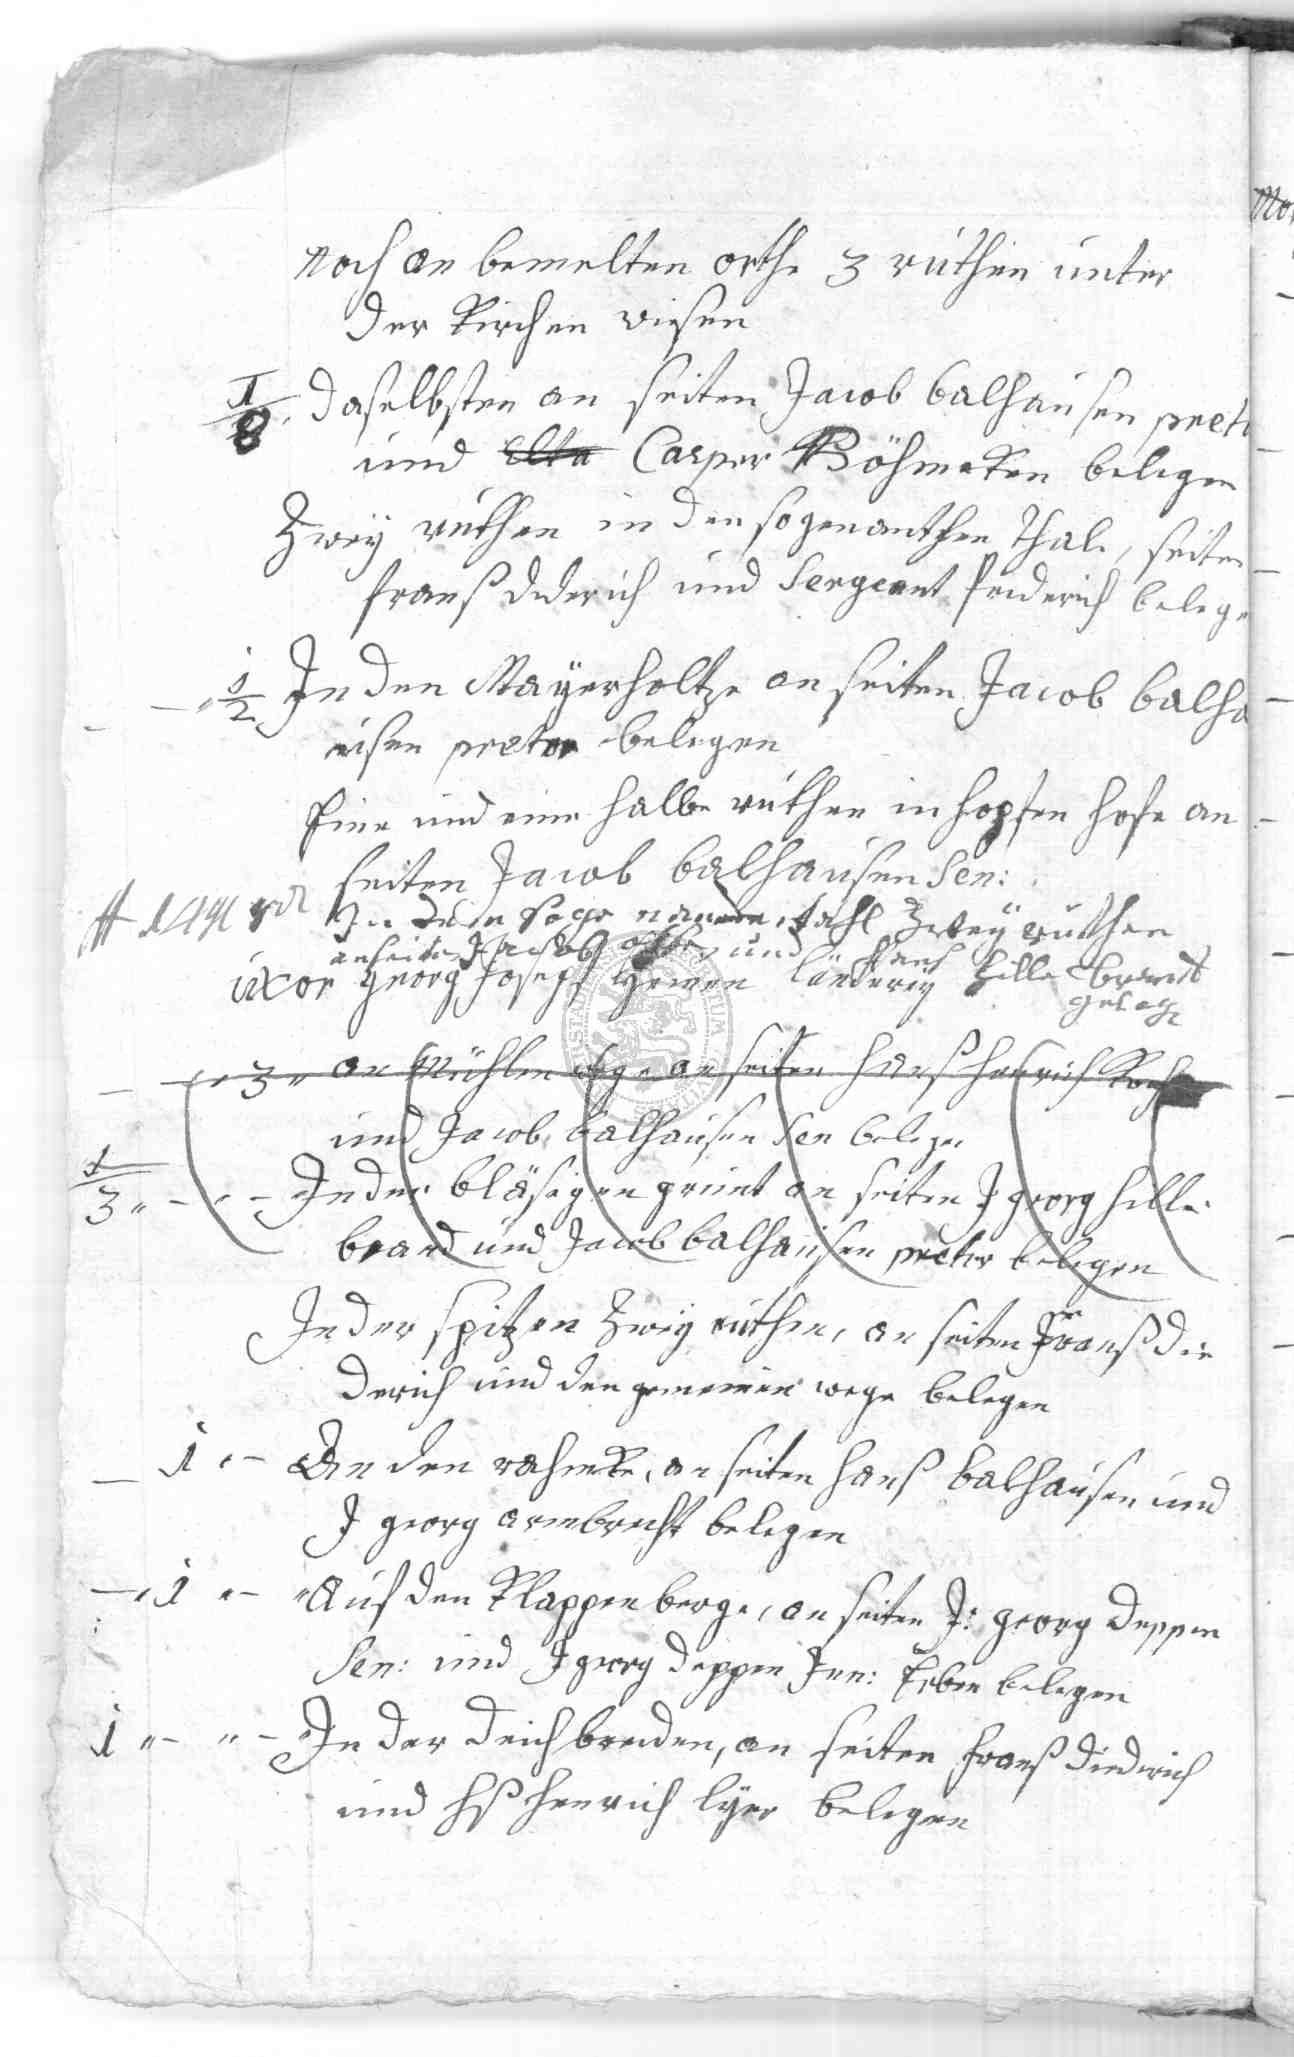 noch an bemelten orthe 3 ruthen unter
der Kirchen wisen
1/8 daselbsten an seiten Jacob balhausen pret
und Casper Böhmeken belegen
Zwey ruthen in den sogenanthen Thale, seiten
franß diderich und Sergeant friderich belege
1/2 In den Mayerholtze an seiten Jacob balha
usen pretor belegen
Eine und eine halbe ruthen in hopfen hofe an
seiten Jacob balhausen Sen:
In dem soge nanten tahl Zwey ruthen
anseiten Jacob und Hanß Hille brandt
geleg
uxor georg Joseph länderey
3 an Mühlen wege an seiten hanß henrich Koch
und Jacob balhausen Sen belegen
1/3 In der bläsigen grunt an seiten J georg hille
brand und Jacob balhausen pretor belegen
In der spitzen Zwey ruthen, an seiten Franß die
derich und den gemeinen wege belegen
1 An den rahmke, an seiten hanß balhausen und
J georg armbrecht belegen
1 Auf den Klappenberge, an seiten J: georg deppen
Sen: und J georg deppen Jun: Erben belegen
1 In der deichbreden, an seiten franß diedrich
und Hß henrich lyer belegen
Mor